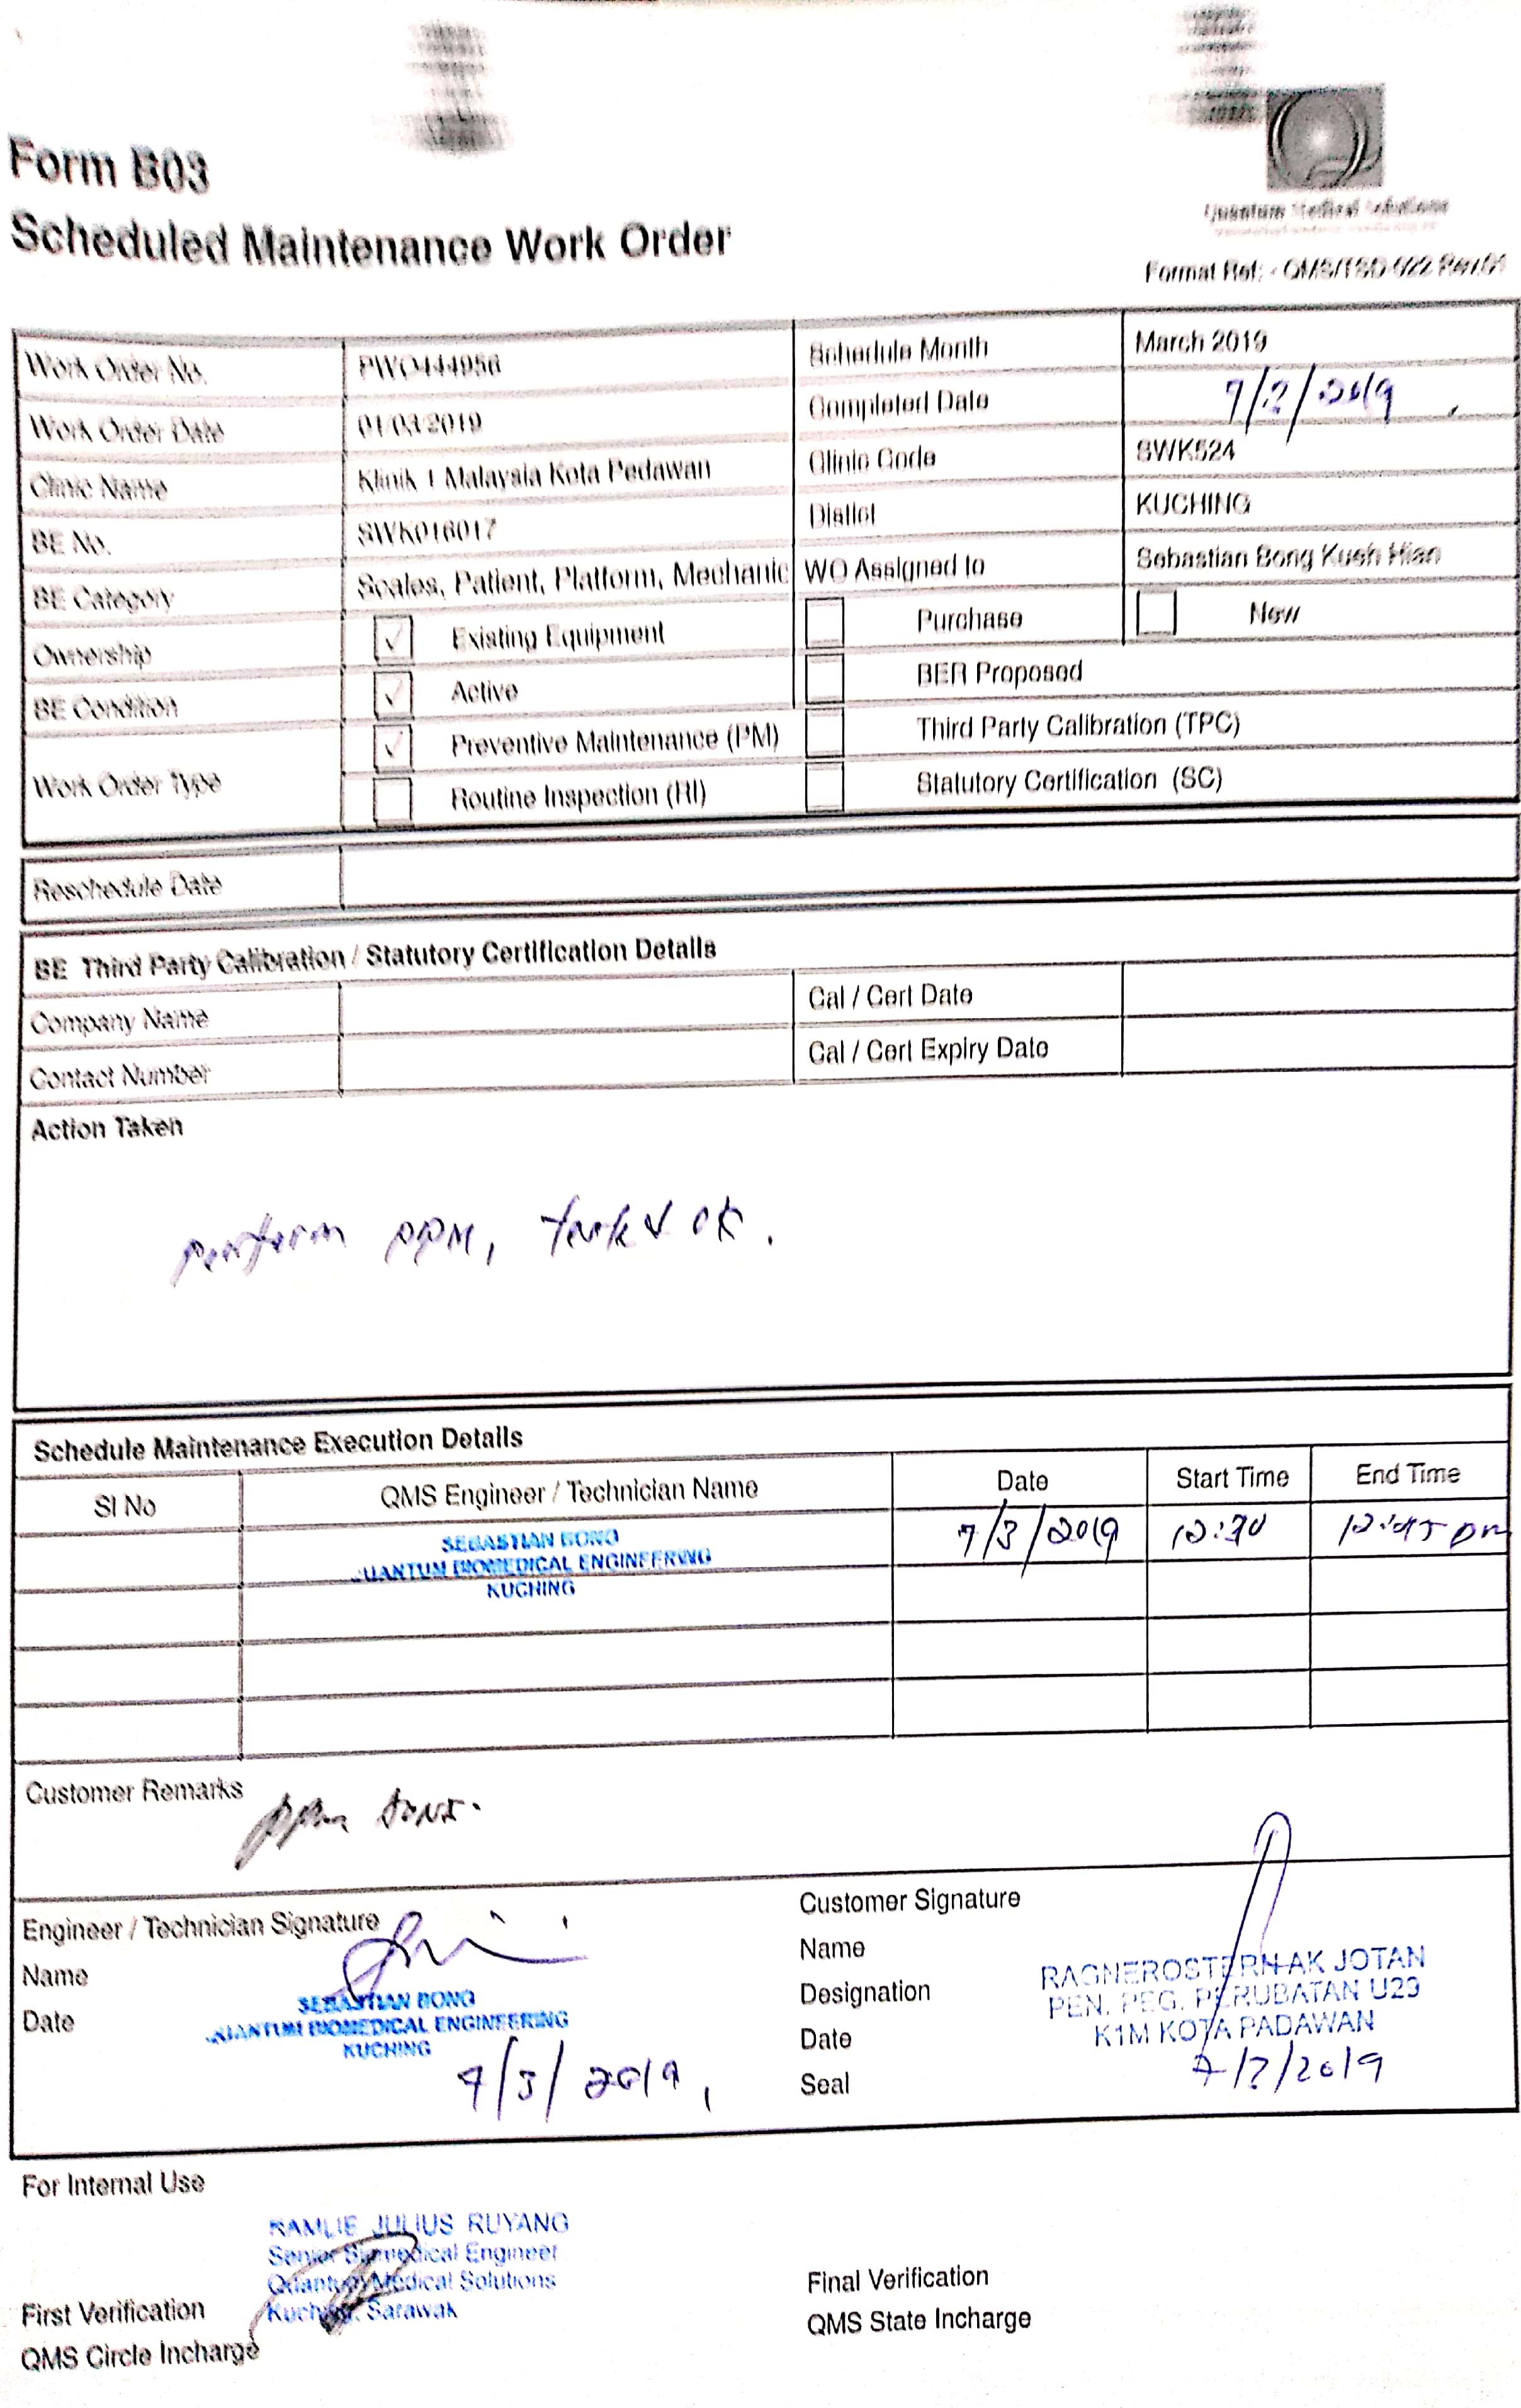 Form B03
Scheduled Maintenance Work Order
Quantum Medical Solutions
Format Ref: - QMS/TSD-022 Rev.01
Work Order No. PWO444956 Schedule Month March 2019
Work Order Date 01/03/2019 Completed Date 7/3/2019
Clinic Name Klinik 1 Malaysia Kota Pedawan Clinic Code SWK524
BE No. SWK016017 Distict KUCHING
BE Category Scales, Patient, Platform, Mechanic WO Assigned to Sebastian Bong Kueh Hian
Ownership ✓ Existing Equipment Purchase New
BE Condition ✓ Active BER Proposed
Work Order Type ✓ Preventive Maintenance (PM) Third Party Calibration (TPC)
Routine Inspection (RI) Statutory Certification (SC)
Reschedule Date
BE Third Party Calibration / Statutory Certification Details
Company Name Cal / Cert Date
Contact Number Cal / Cert Expiry Date
Action Taken
perform PPM, ok.
Schedule Maintenance Execution Details
Sl No QMS Engineer / Technician Name Date Start Time End Time
SEBASTIAN BONG 7/3/2019 12:30 12:45 pm
QUANTUM BIOMEDICAL ENGINEERING
KUCHING
Customer Remarks ppm done.
Engineer / Technician Signature Customer Signature
Name Name
Date Designation
Date
Seal
SEBASTIAN BONG
QUANTUM BIOMEDICAL ENGINEERING
KUCHING
7/3/2019
RAGNEROSTERN AK JOTAN
PEN. PEG. PERUBATAN U29
K1M KOTA PADAWAN
7/3/2019
For Internal Use
RAMLIE JULIUS RUYANG
Senior Biomedical Engineer
Quantum Medical Solutions
Kuching, Sarawak
First Verification Final Verification
QMS Circle Incharge QMS State Incharge